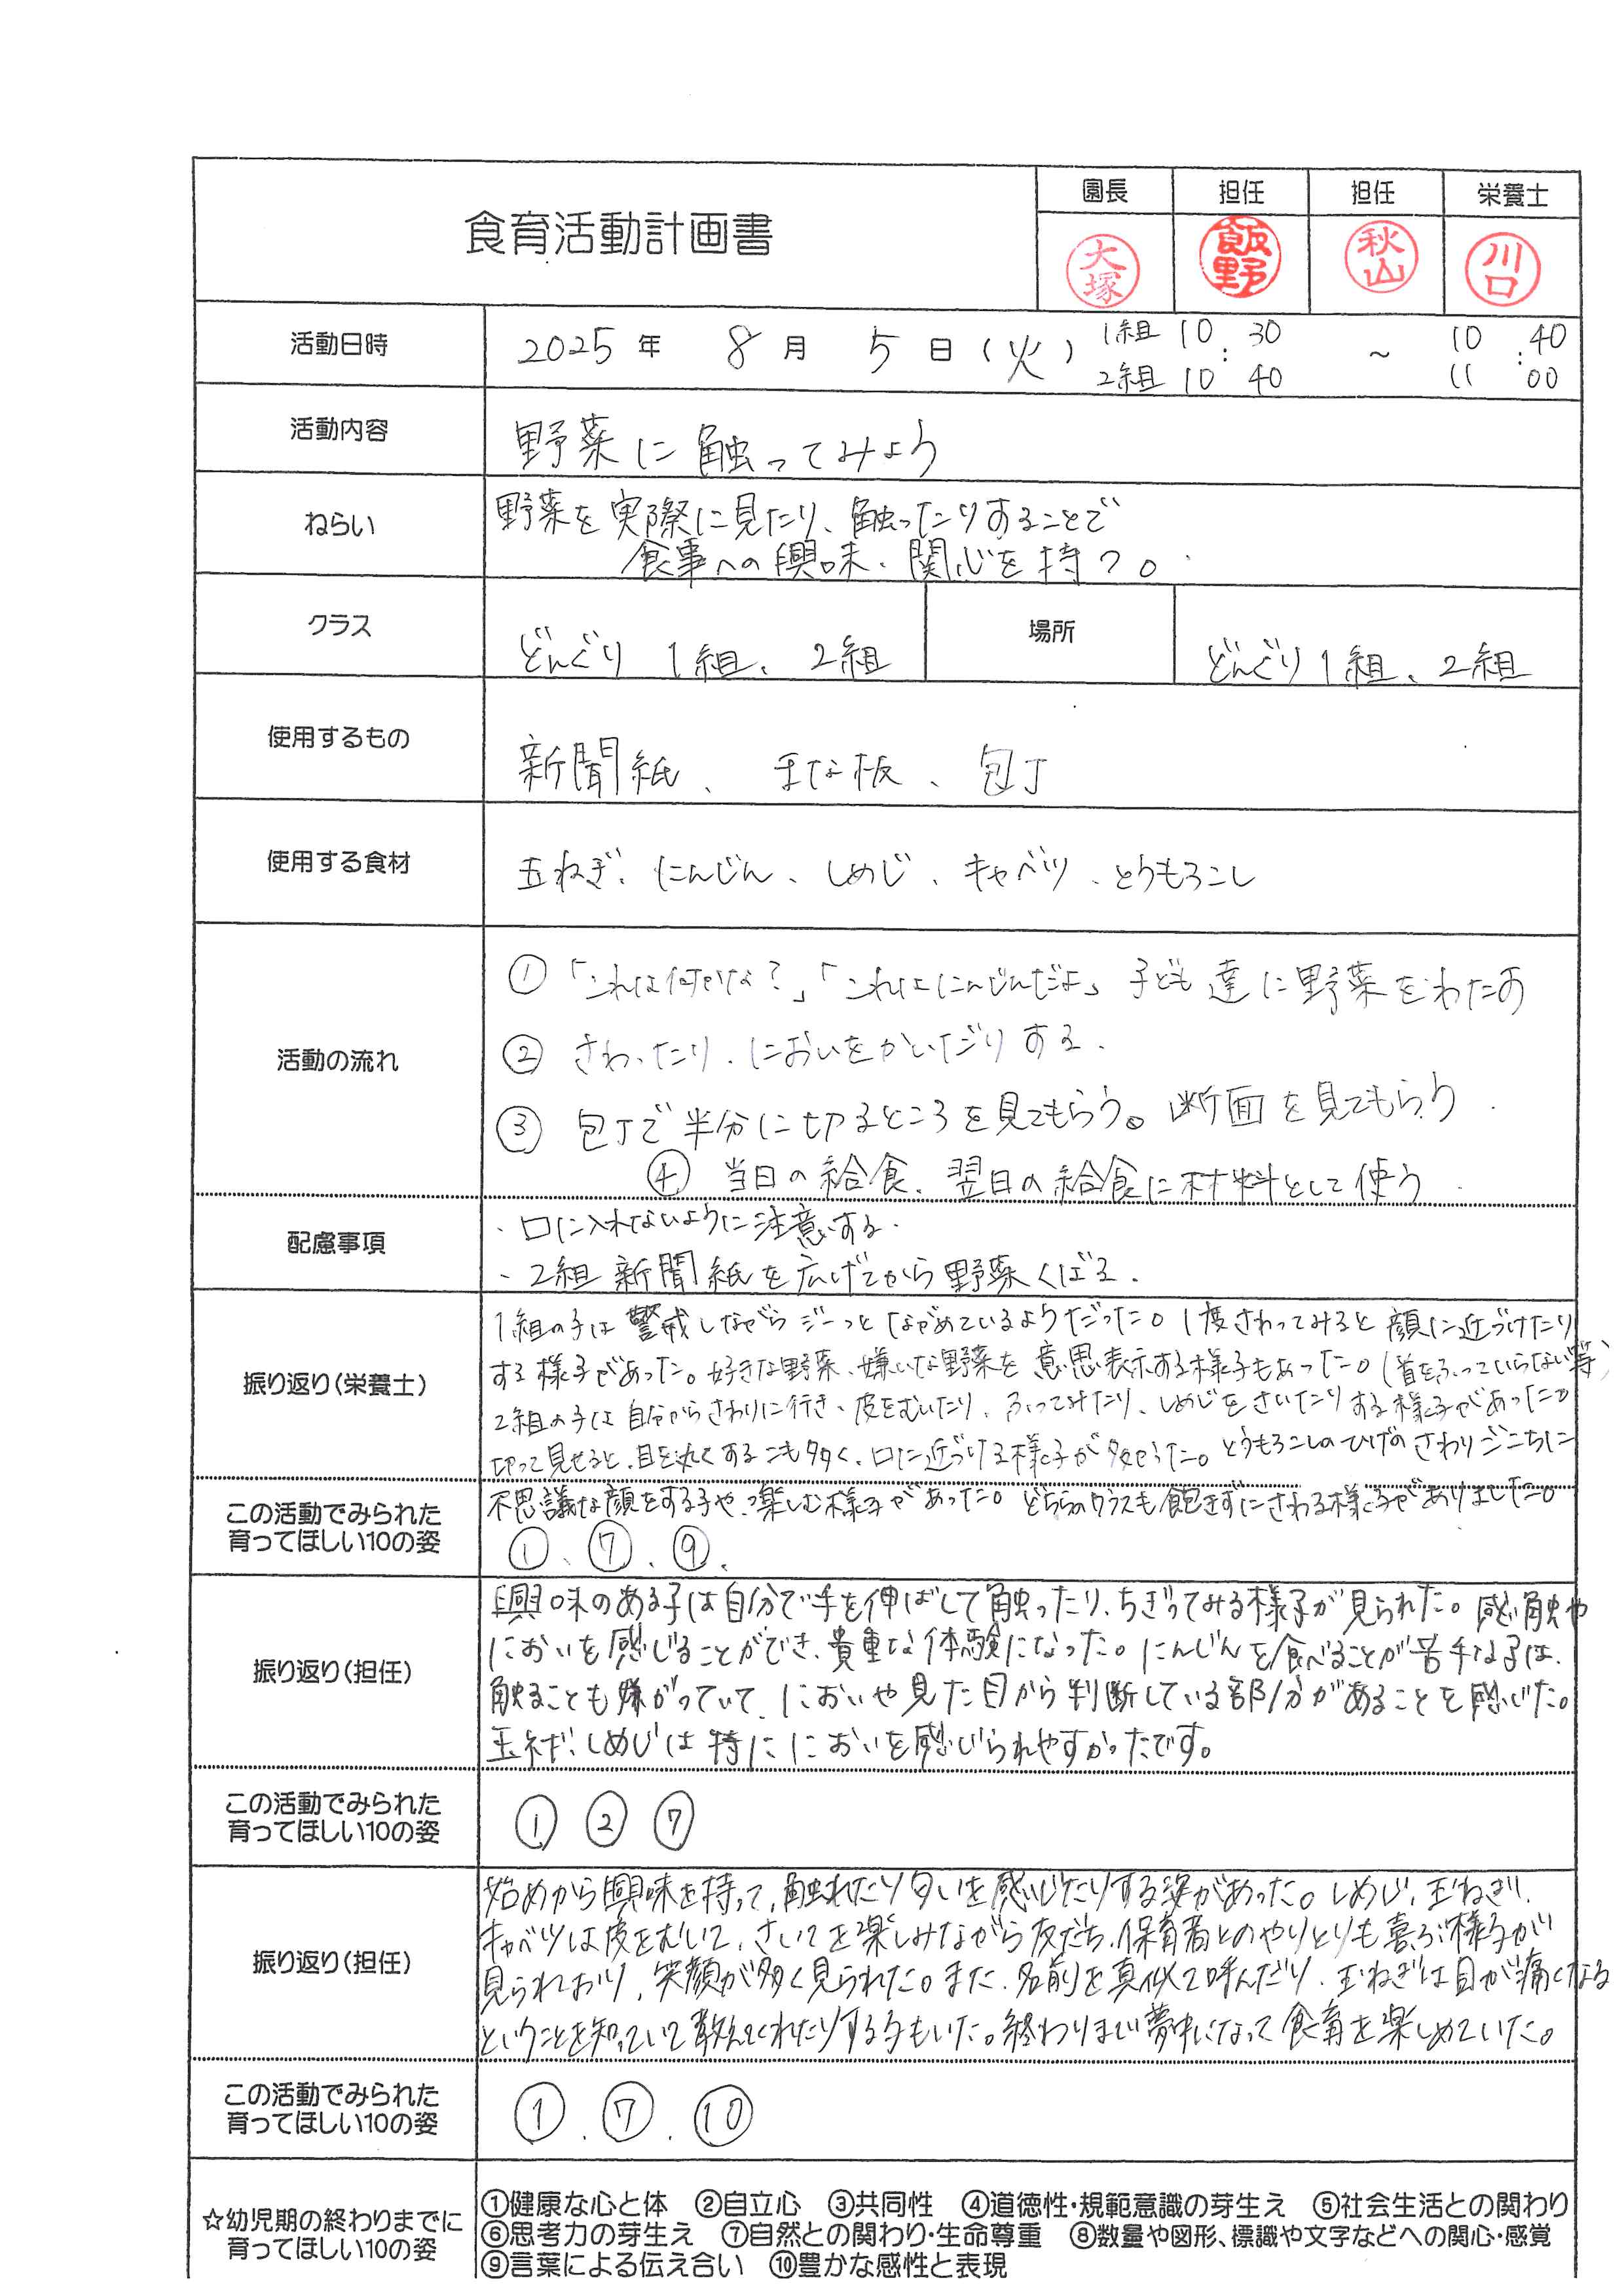 食育活動計画書
園長 担任 担任 栄養士
大塚 飯野 秋山 川口
活動日時 2025年 8月 5日(火) 1組 10:30 ~ 10:40
2組 10 40 11 00
活動内容 野菜に触ってみよう
ねらい 野菜を実際に見たり、触ったりすることで
食事への興味、関心を持つ。
クラス どんぐり 1組、2組 場所 どんぐり1組、2組
使用するもの 新聞紙、まな板、包丁
使用する食材 玉ねぎ、にんじん、しめじ、キャベツ、とうもろこし
活動の流れ
①「これは何かな?」「これはにんじんだよ」子ども達に野菜をわたす
② さわったり、においをかいだりする.
③ 包丁で半分に切るところを見てもらう。断面を見てもらう.
④ 当日の給食、翌日の給食に材料として使う.
配慮事項
・口に入れないように注意する.
・2組 新聞紙を広げてから野菜くばる.
振り返り(栄養士)
1組の子は警戒しながらジーっとながめているようだった。1度さわってみると顔に近づけたり
する様子であった。好きな野菜、嫌いな野菜を意思表示する様子もあった。(首をふっていらない等)
2組の子は自分からさわりに行き、皮をむいたり、ふってみたり、しめじをさいたりする様子があった。
切って見せると、目を丸くするこも多く、口に近づける様子が多かった。とうもろこしのひげのさわりごこちに
不思議な顔をする子や、楽しむ様子があった。どちらのクラスも飽きずにさわる様子がありました。
この活動でみられた
育ってほしい10の姿
①、⑦、⑨.
振り返り(担任)
興味のある子は自分で手を伸ばして触ったり、ちぎってみる様子が見られた。感触や
においを感じることができ、貴重な体験になった。にんじんを食べることが苦手な子は、
触ることも嫌がっていて、においや見た目から判断している部分があることを感じた。
玉ネギ、しめじは特ににおいを感じられやすかったです。
この活動でみられた
育ってほしい10の姿
① ② ⑦
振り返り(担任)
始めから興味を持って、触れたり匂いを感じたりする姿があった。しめじ、玉ねぎ、
キャベツは皮をむいて、さいてを楽しみながら友だち、保育者とのやりとりも喜ぶ様子が
見られており、笑顔が多く見られた。また、名前を真似て呼んだり、玉ねぎは目が痛くなる
ということを知っていて教えてくれたりする子もいた。終わりまで夢中になって食育を楽しめていた。
この活動でみられた
育ってほしい10の姿
①.⑦.⑩
☆幼児期の終わりまでに
育ってほしい10の姿
①健康な心と体 ②自立心 ③共同性 ④道徳性・規範意識の芽生え ⑤社会生活との関わり
⑥思考力の芽生え ⑦自然との関わり・生命尊重 ⑧数量や図形、標識や文字などへの関心・感覚
⑨言葉による伝え合い ⑩豊かな感性と表現